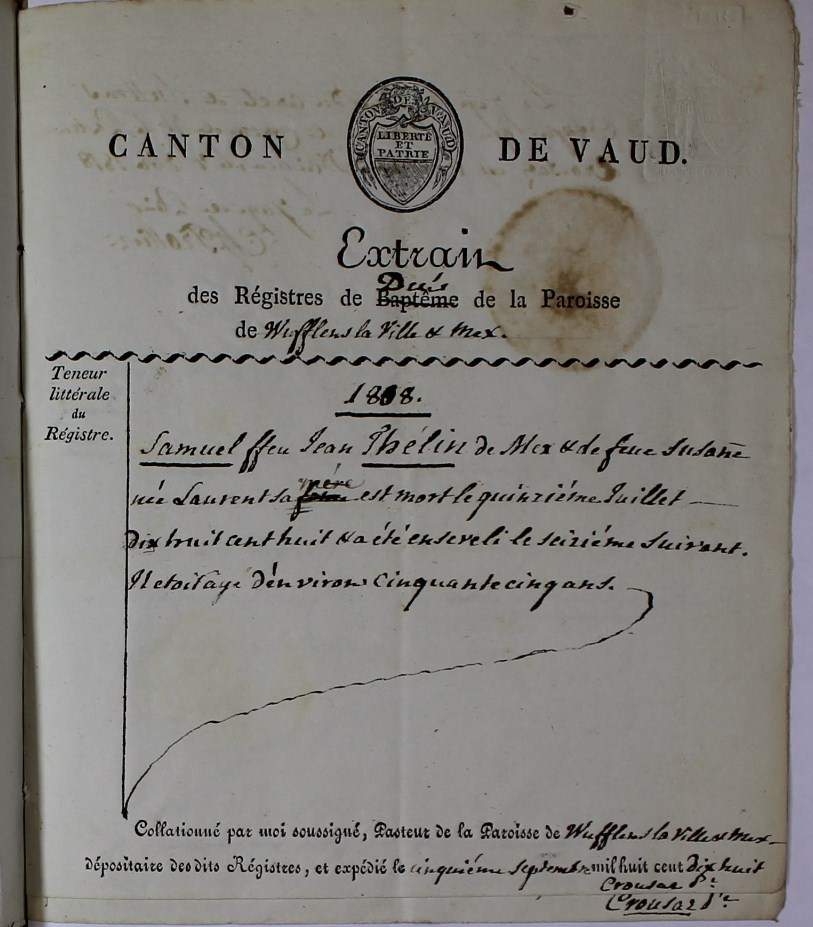 CANTON DE VAUD
LIBERTÉ
ET
PATRIE
CANTON DE VAUD.
Extrait
Décès
des Régistres de Baptême de la Paroisse
de Wufflens la Ville & Mex.
Teneur
littérale
du
Régistre.
1808.
Samuel ffeu Jean Thélin de Mex & de feue Susanne
mère
née Laurent sa est mort le quinziéme Juillet
dix huit cent huit & a été enseveli le seiziéme suivant.
Il etoit agé d'environ cinquante cinq ans.
Collationné par moi soussigné, Pasteur de la Paroisse de Wufflens la Ville & Mex
dépositaire des dits Régistres, et expédié le cinquiéme septembre mil huit cent dix huit
Crousaz Pr.
Crousaz Pr.